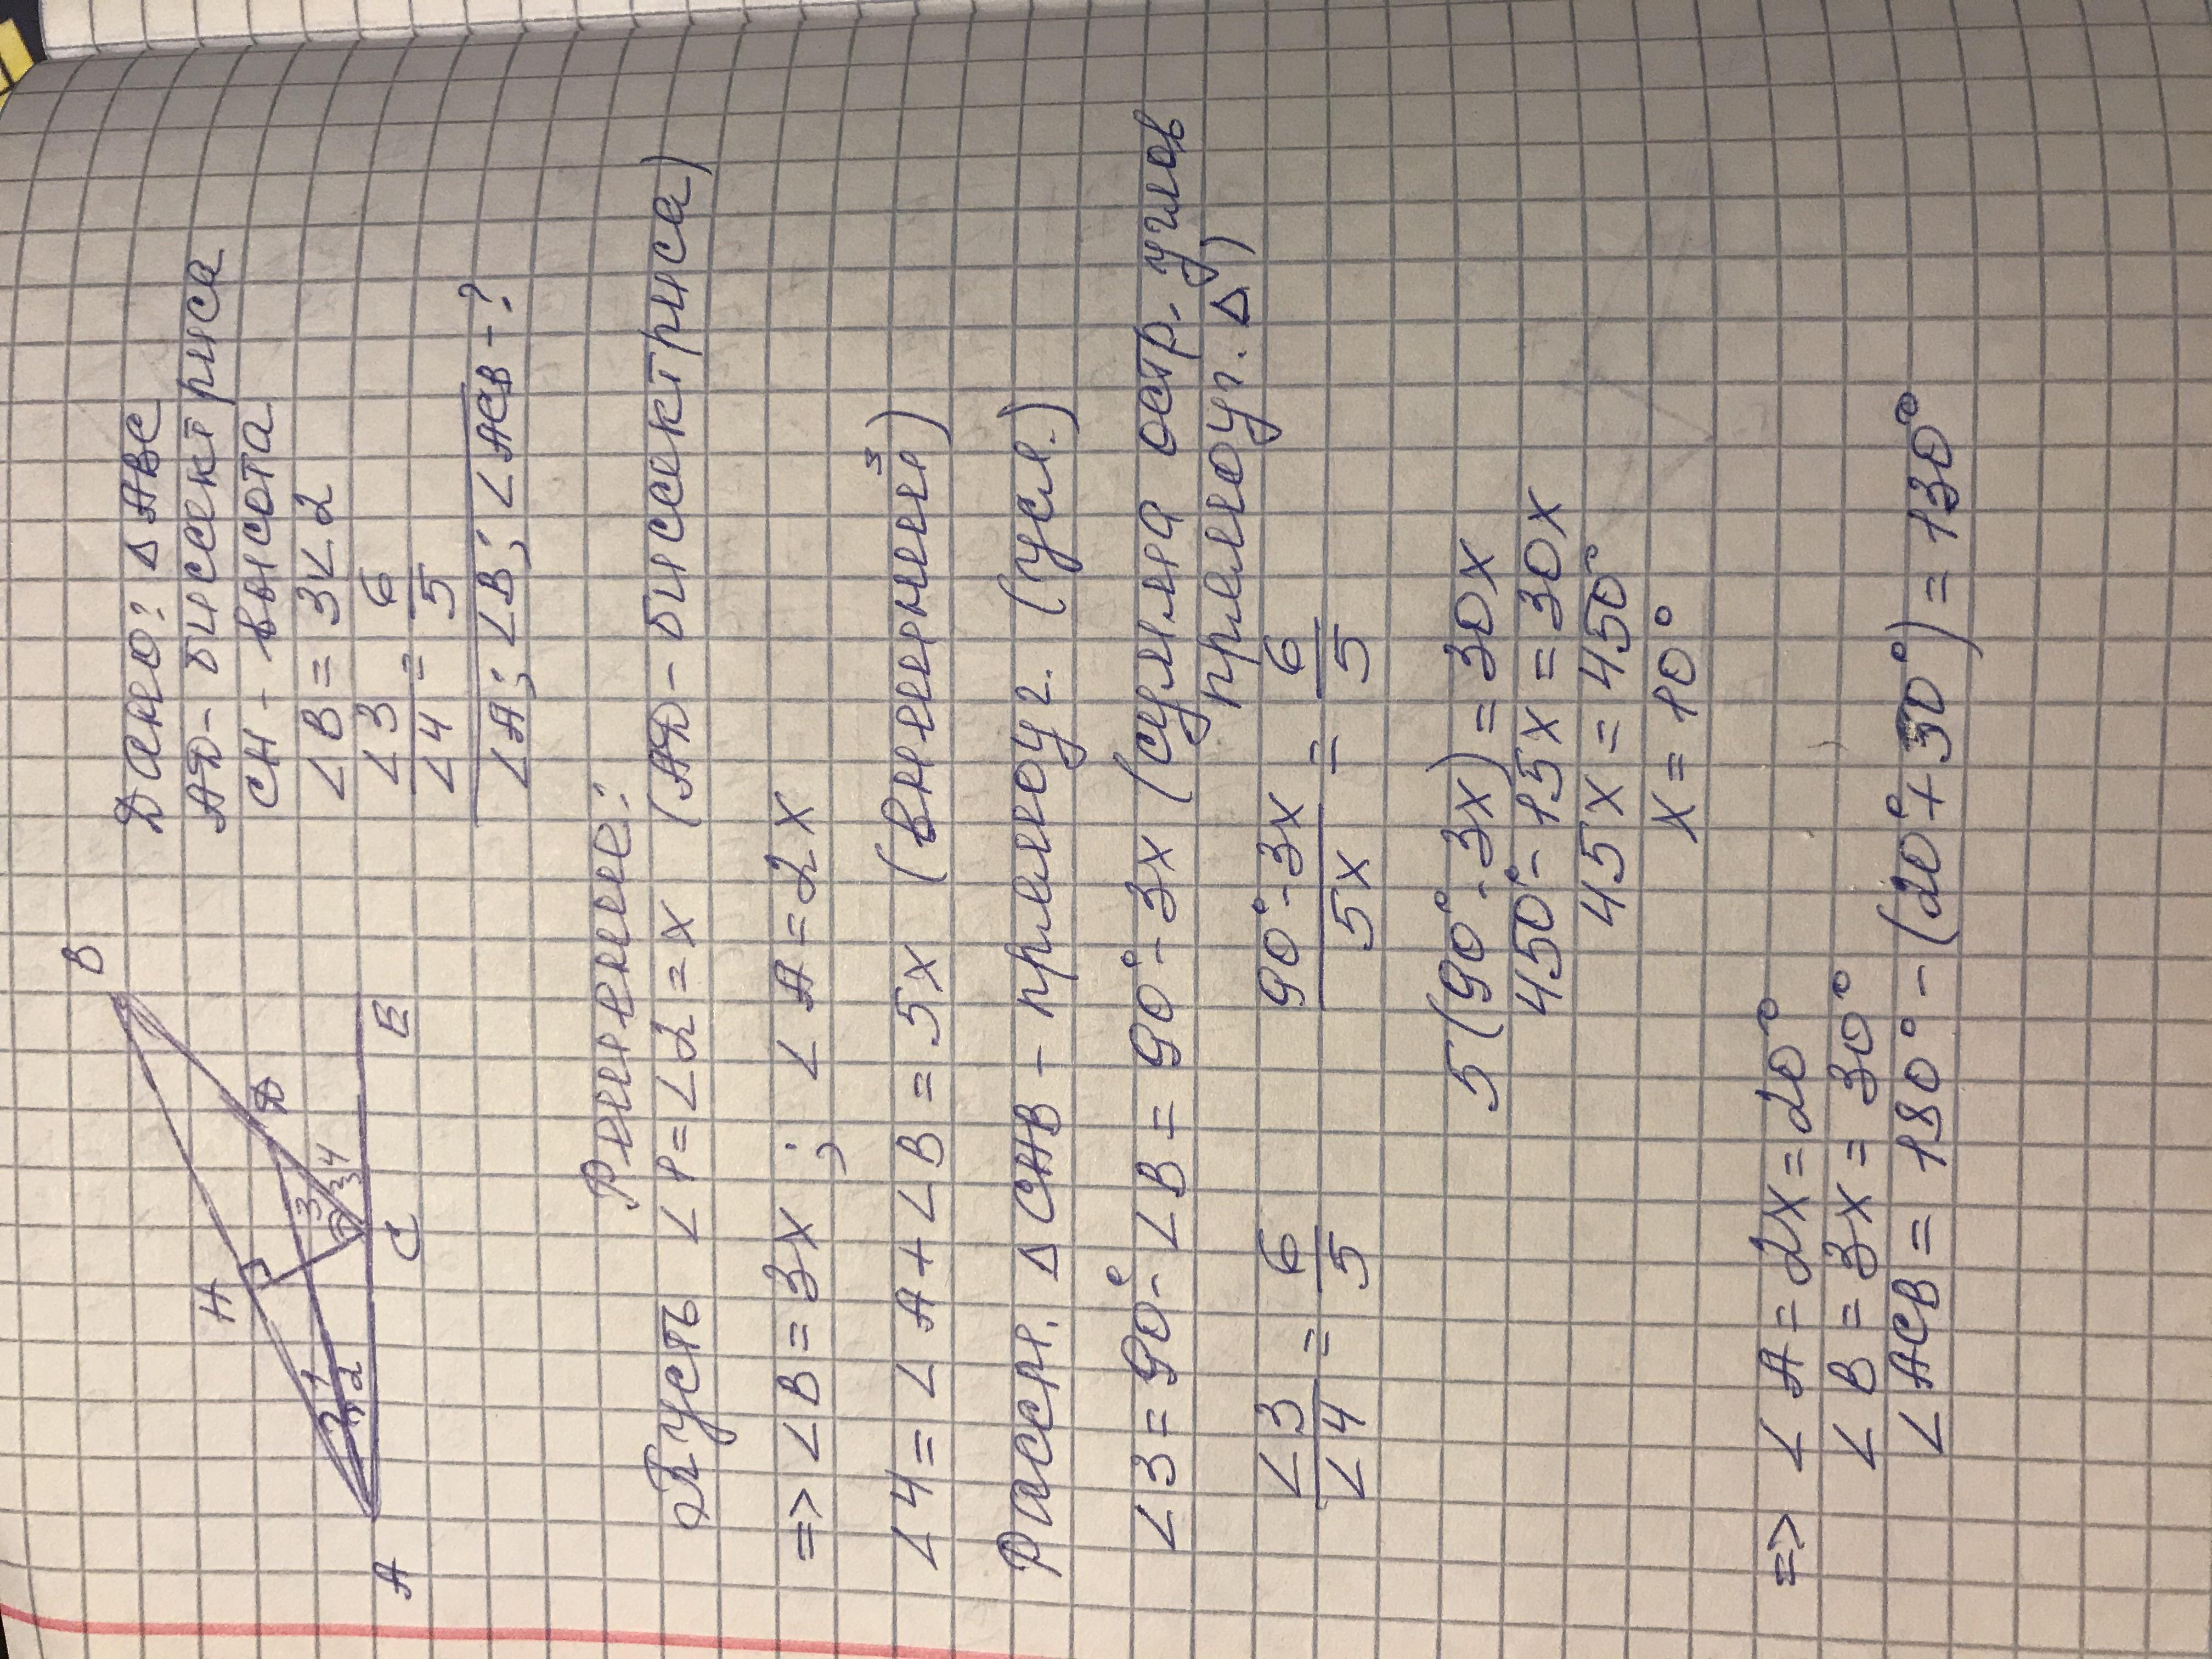 B
H
Д
1
2
3
4
A
C
E
Дано: Δ ABC
АД - биссектриса
CH - высота
∠B = 3∠2
∠3/∠4 = 6/5
∠A; ∠B; ∠ACB - ?
Решение:
Пусть ∠1 = ∠2 = x (АД - биссектриса)
=> ∠B = 3x ; ∠A = 2x
∠4 = ∠A + ∠B = 5x (внешний)
Рассм. Δ CHB - прямоуг. (усл.)
∠3 = 90° - ∠B = 90° - 3x (сумма остр. углов
прямоуг. Δ)
∠3/∠4 = 6/5 (90° - 3x)/5x = 6/5
5(90° - 3x) = 30x
450° - 15x = 30x
45x = 450°
x = 10°
=> ∠A = 2x = 20°
∠B = 3x = 30°
∠ACB = 180° - (20° + 30°) = 130°